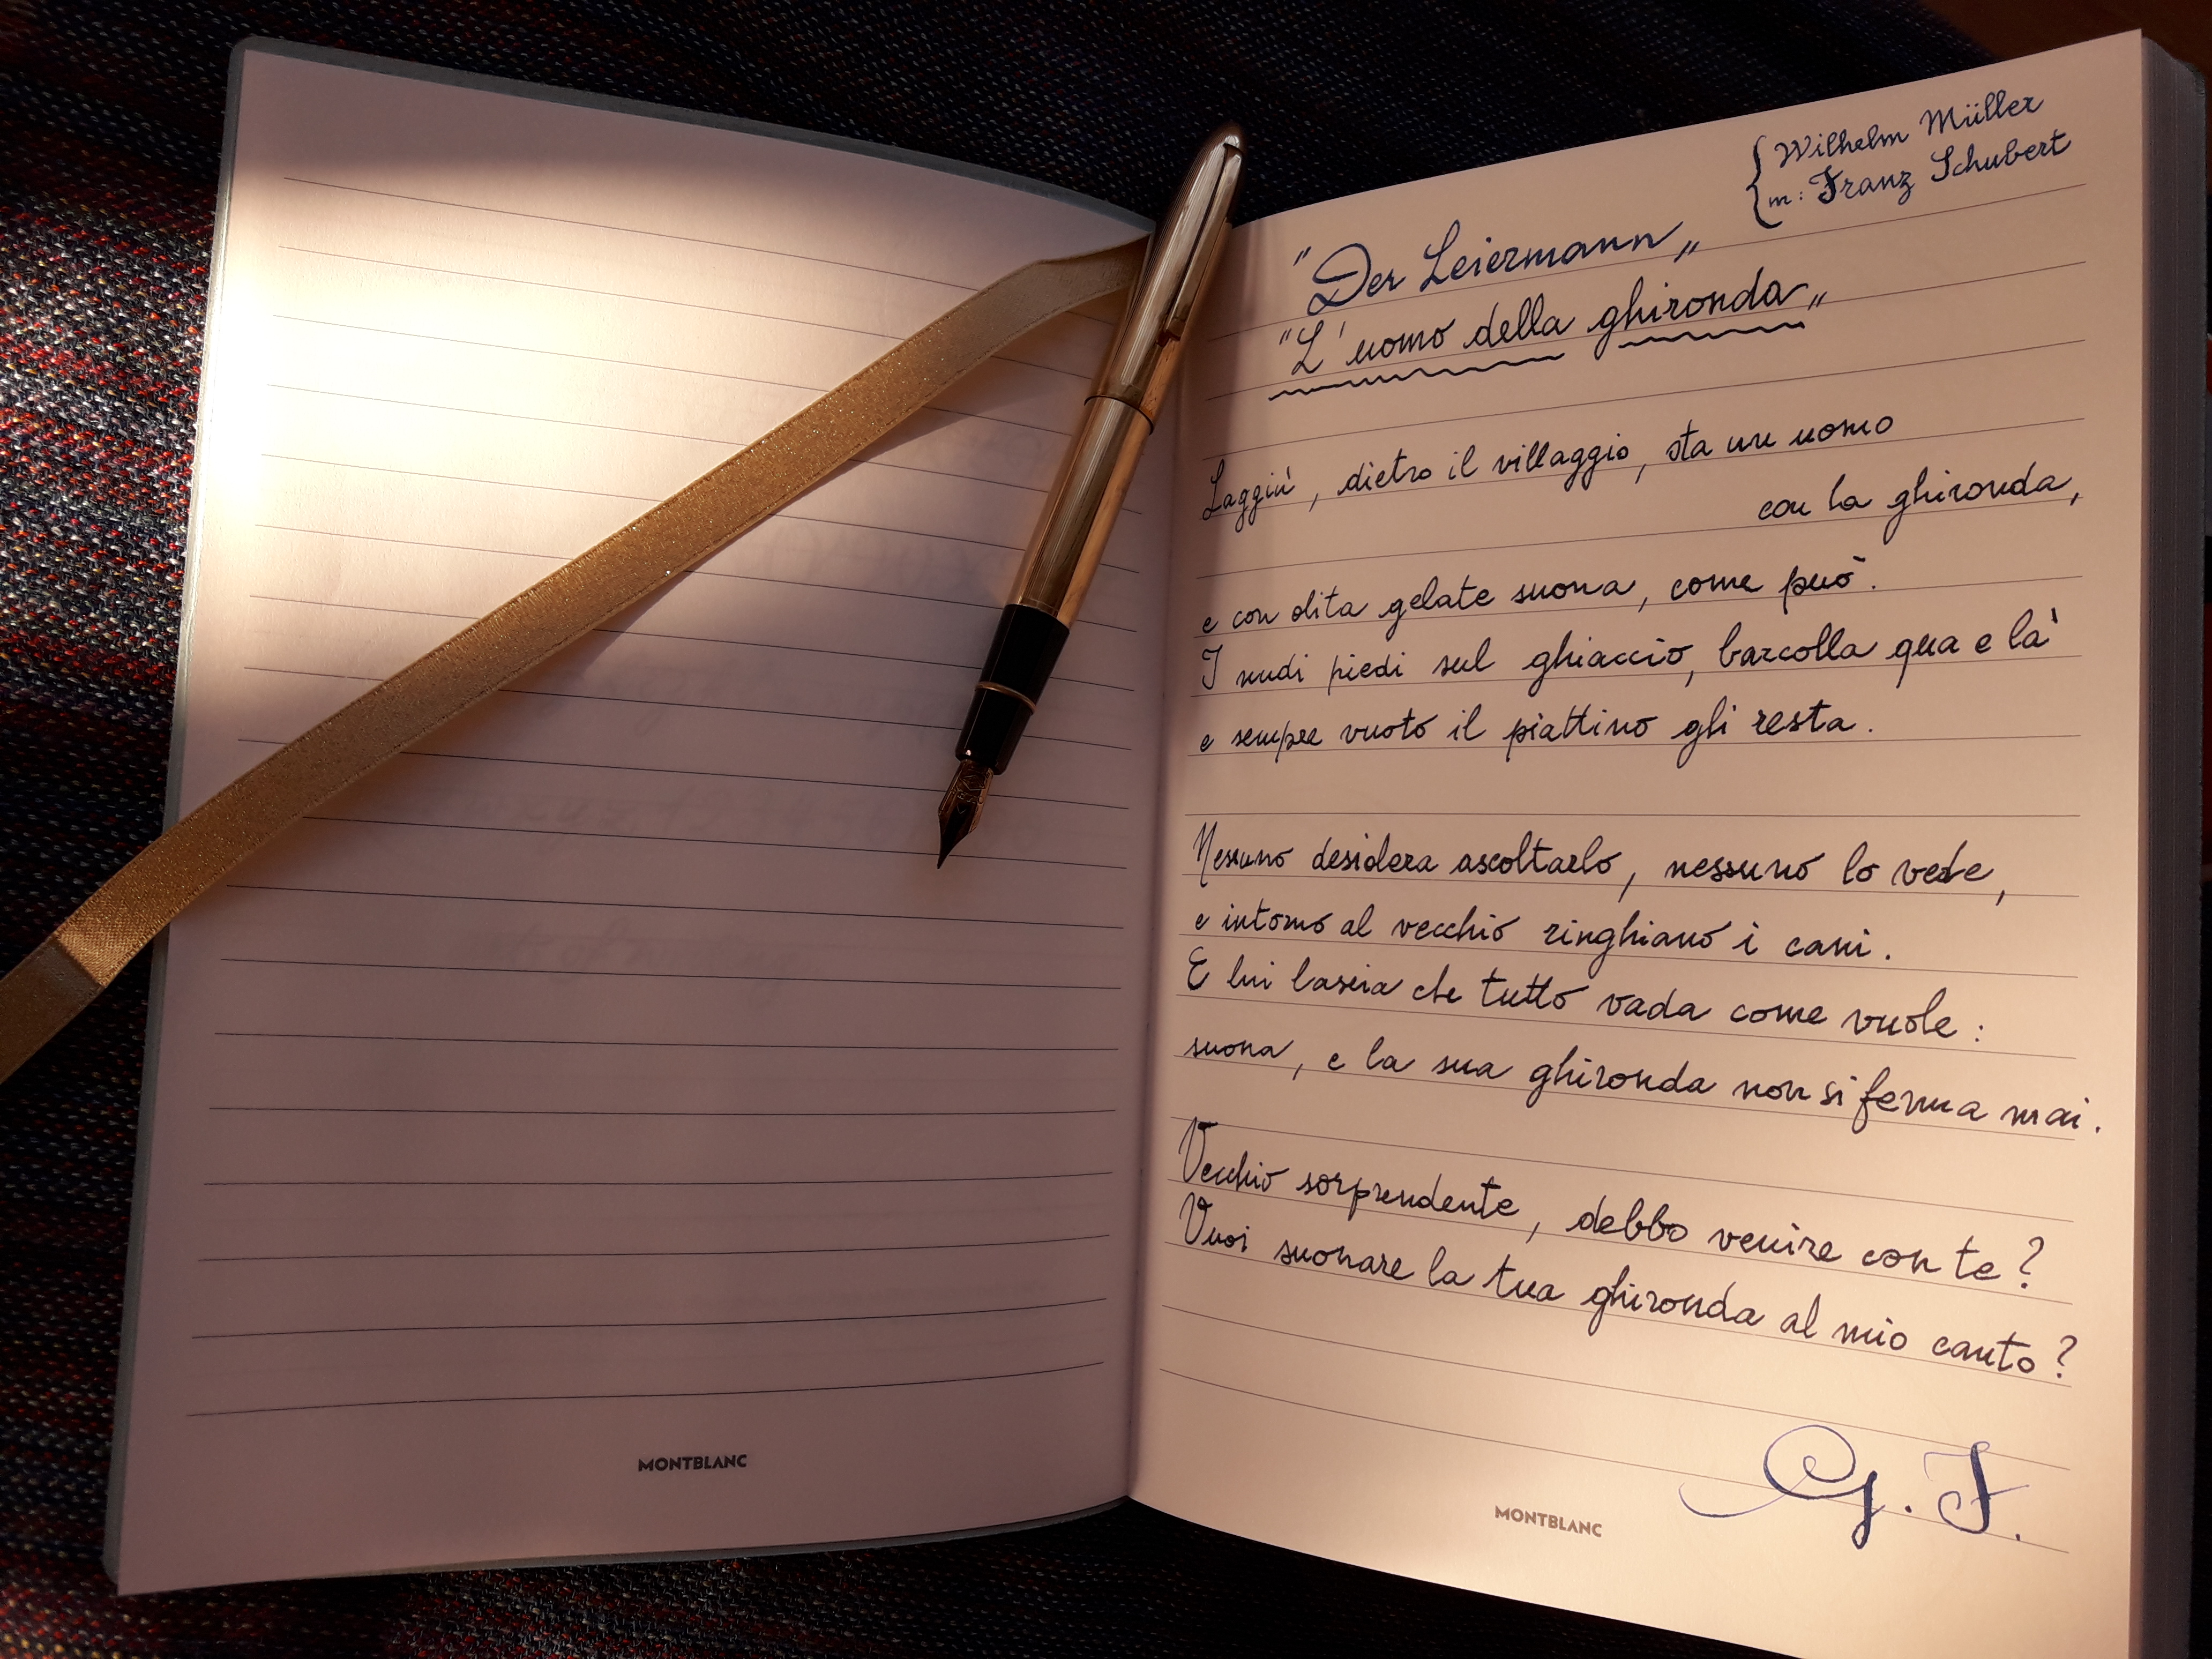 { Wilhelm Müller
m: Franz Schubert
"Der Leiermann„
"L'uomo della ghironda„
Laggiù, dietro il villaggio, sta un uomo
con la ghironda,
e con dita gelate suona, come può.
I nudi piedi sul ghiaccio, barcolla qua e là
e sempre vuoto il piattino gli resta.
Nessuno desidera ascoltarlo, nessuno lo vede,
e intorno al vecchio ringhiano i cani.
E lui lascia che tutto vada come vuole:
suona, e la sua ghironda non si ferma mai.
Vecchio sorprendente, debbo venire con te?
Vuoi suonare la tua ghironda al mio canto?
G. F.
MONTBLANC
MONTBLANC